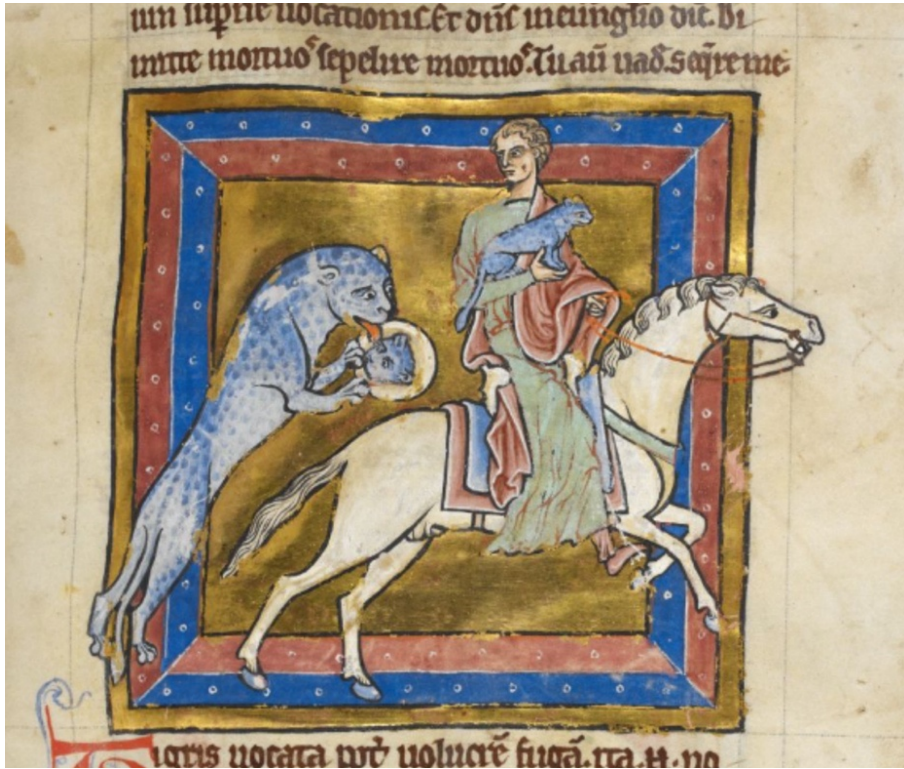 supne uocationis. Et dñs in euanglio dic̃. Di
mitte mortuos sepelire mortuos. Tu aũ uad. seqre me.
Tigris uocata ppt̃ uolucrẽ fugã. ita .n. no